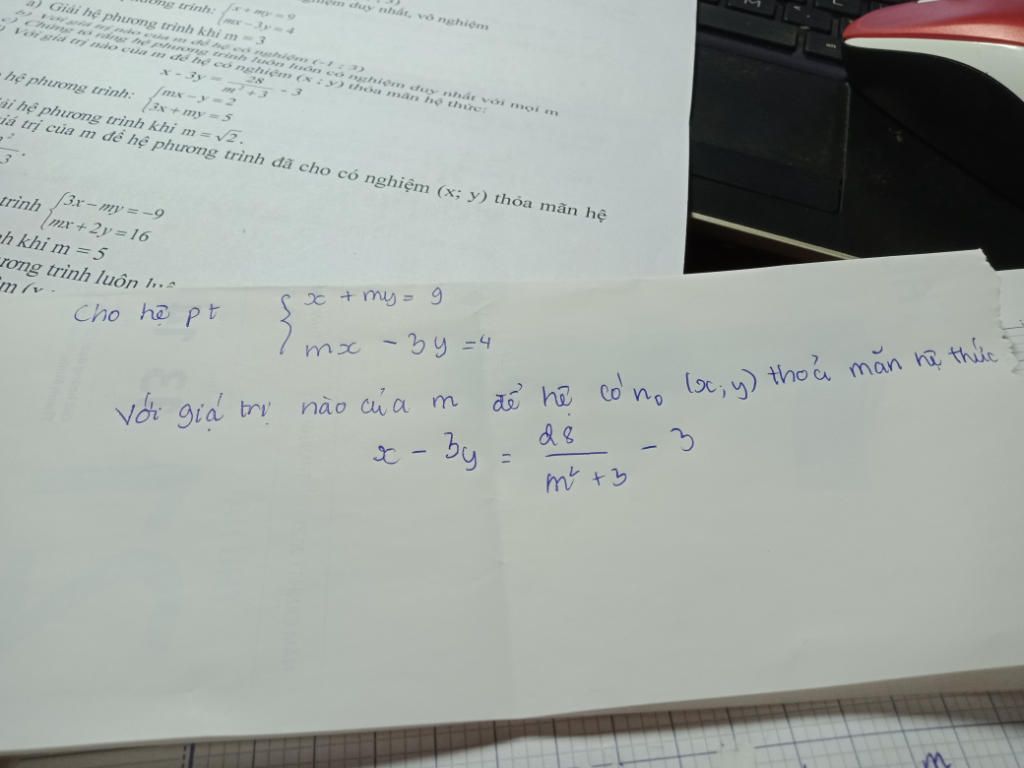 phương trình: {x + my = 9
mx − 3y = 4
a) Giải hệ phương trình khi m = 3
b) Với giá trị nào của m để hệ có nghiệm (-1 ; 3)
c) Chứng tỏ rằng hệ phương trình luôn luôn có nghiệm duy nhất với mọi m
Với giá trị nào của m để hệ có nghiệm (x ; y) thỏa mãn hệ thức:
x - 3y = 28/(m² + 3) - 3
hệ phương trình: {mx − y = 2
3x + my = 5
hệ phương trình khi m = √2.
trị của m để hệ phương trình đã cho có nghiệm (x; y) thỏa mãn hệ
trình {3x − my = −9
mx + 2y = 16
khi m = 5
trình luôn
Cho hệ pt { x + my = 9
mx - 3y = 4
Với giá trị nào của m để hệ có n₀ (x; y) thoả mãn hệ thức
x - 3y = 28/(m² + 3) - 3
m